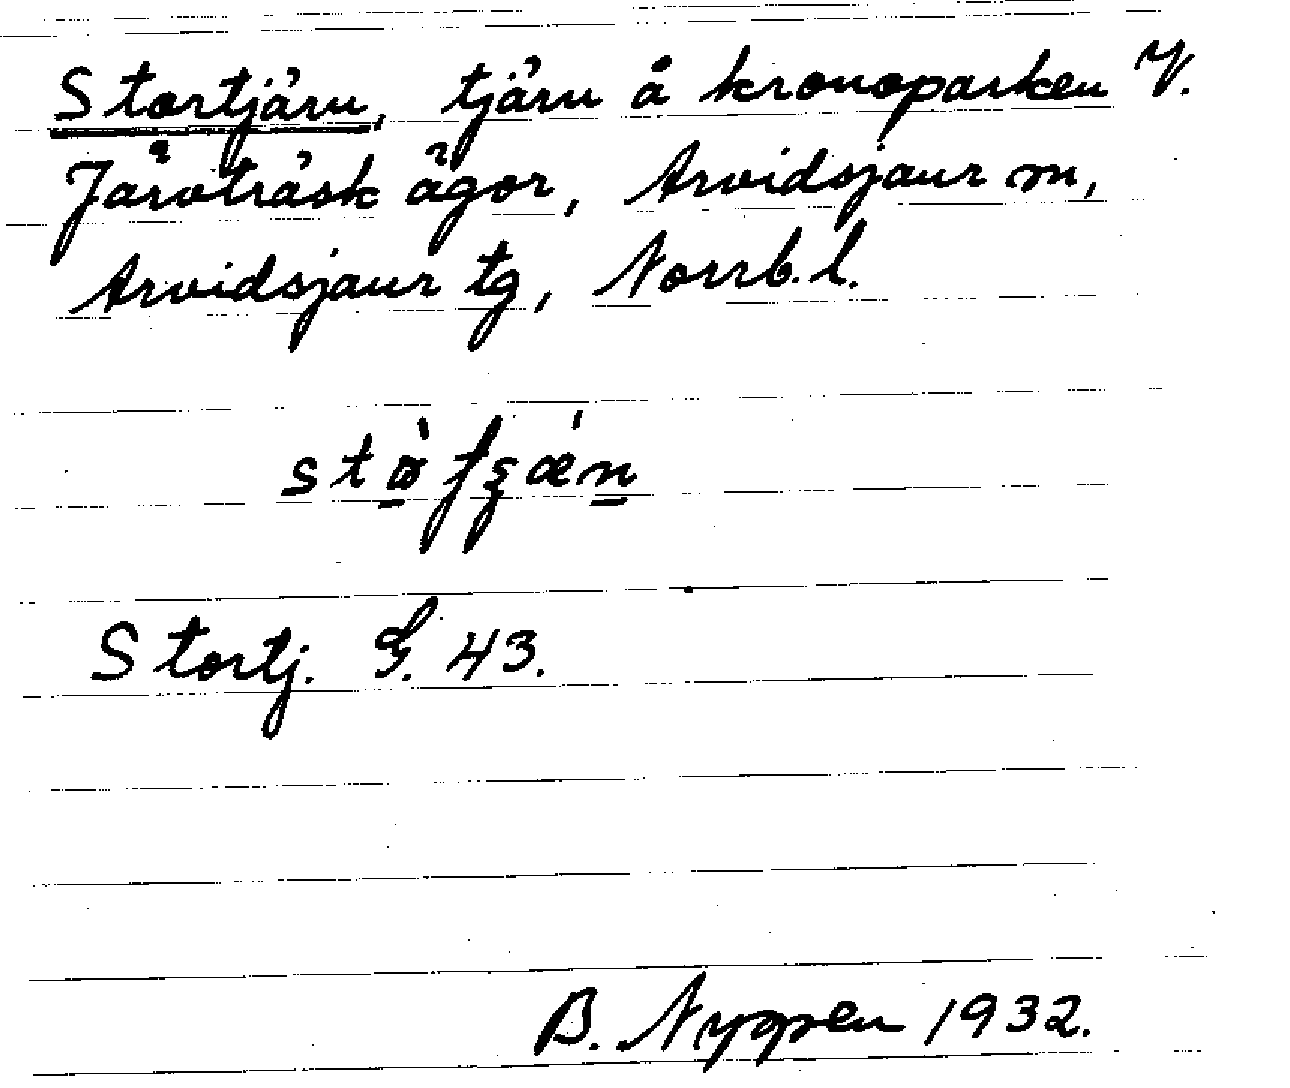 Stortjärn, tjärn å kronoparken V.
Järvträsk ägor, Arvidsjaur sn,
Arvidsjaur tg, Norrb. l.
Stortj. G. 43.
B. Nyppen 1932.